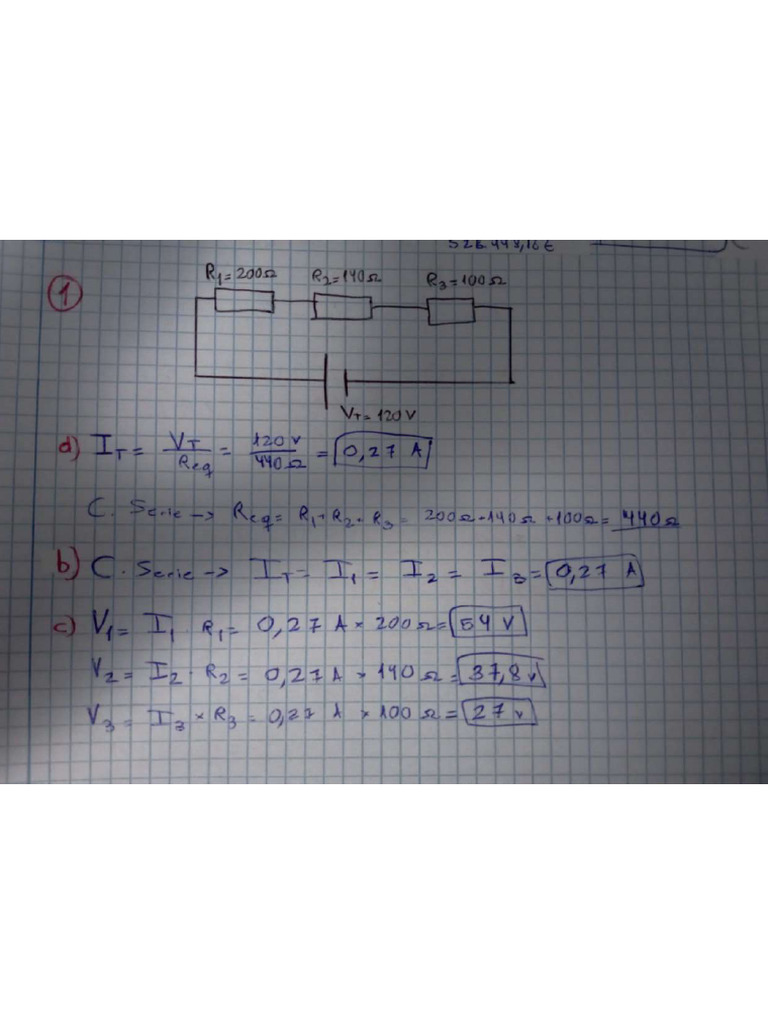 526.448,16€
R₁=200Ω R₂=140Ω R₃=100Ω
1
V_T=120V
a) I_T = V_T/Req = 120 V/440Ω = 0,27 A
C. Serie → Req = R₁+R₂+R₃ = 200Ω+140Ω+100Ω = 440Ω
b) C. Serie → I_T = I₁ = I₂ = I₃ = 0,27 A
c) V₁ = I₁ · R₁ = 0,27 A × 200Ω = 54 V
V₂ = I₂ · R₂ = 0,27 A × 140 Ω = 37,8 v
V₃ = I₃ × R₃ = 0,27 A × 100 Ω = 27 v